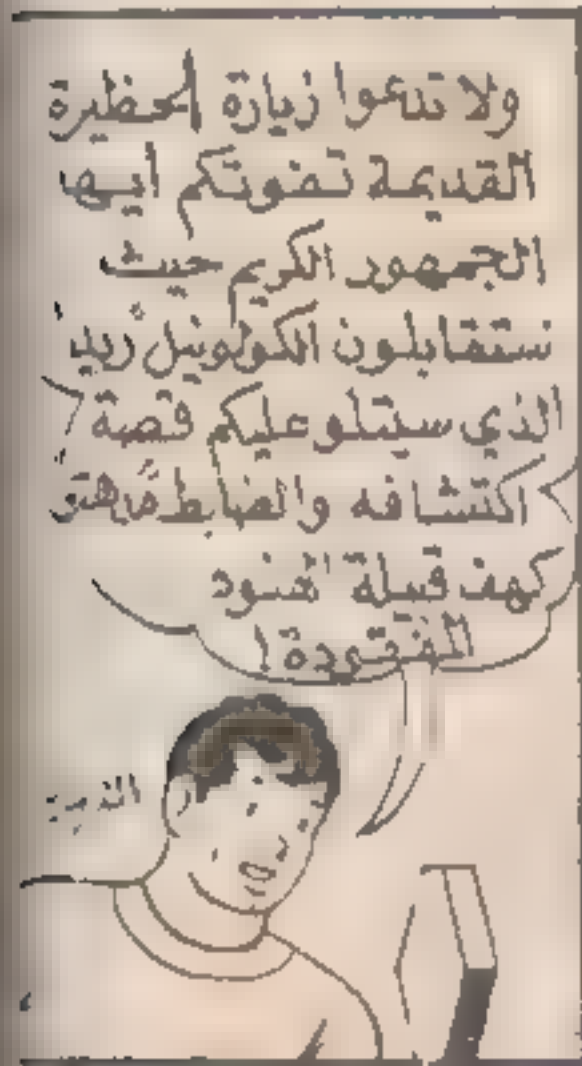 ولا تدعوا زيارة الحظيرة
القديمة تفوتكم أيها
الجمهور الكريم حيث
ستقابلون الكولونيل ريد
الذي سيتلو عليكم قصة
اكتشافه والضابط
كهف قبيلة الهنود
المفقودة!